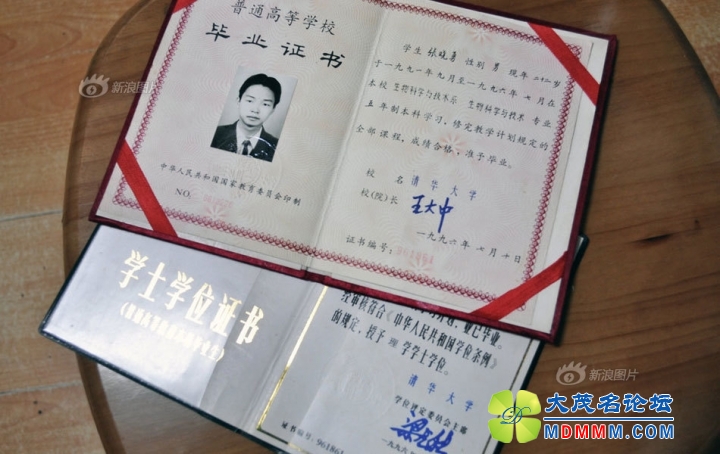 普通高等学校
毕业证书
中华人民共和国国家教育委员会印制
NO.
学生 张晓勇 性别 男 现年 二十二岁
于一九九一年九月至一九九六年七月在
本校 生物科学与技术系 生物科学与技术 专业
五年制本科学习，修完教学计划规定的
全部课程，成绩合格，准予毕业。
校 名 清华大学
校(院)长 王大中
一九九六年七月十日
证书编号：
学士学位证书
业已毕业。
经审核符合《中华人民共和国学位条例》
的规定，授予 理 学学士学位。
清华大学
学位评定委员会主席
证书编号：961861
一九九六年
新浪图片
新浪图片
大茂名论坛
MDMMM.COM